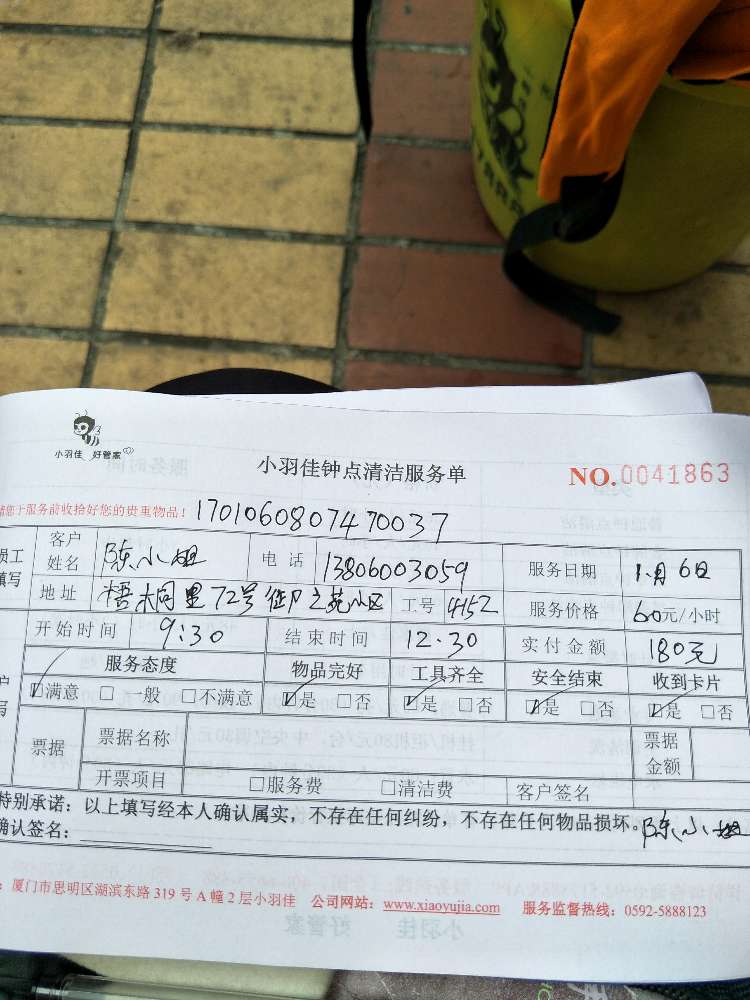 小羽佳 好管家
小羽佳钟点清洁服务单
NO.0041863
您于服务前收拾好您的贵重物品！ 1701060807470037
员工填写 客户姓名 陈小姐 电话 13806003059 服务日期 1月6日
地址 梧桐里72号 之苑小区 工号 4152 服务价格 60元/小时
开始时间 9:30 结束时间 12.30 实付金额 180元
服务态度 物品完好 工具齐全 安全结束 收到卡片
☑满意 □一般 □不满意 ☑是 □否 ☑是 □否 ☑是 □否 ☑是 □否
票据 票据名称 票据金额
开票项目 □服务费 □清洁费 客户签名
特别承诺：以上填写经本人确认属实，不存在任何纠纷，不存在任何物品损坏。陈小姐
确认签名：
：厦门市思明区湖滨东路319号A幢2层小羽佳 公司网站：www.xiaoyujia.com 服务监督热线：0592-5888123